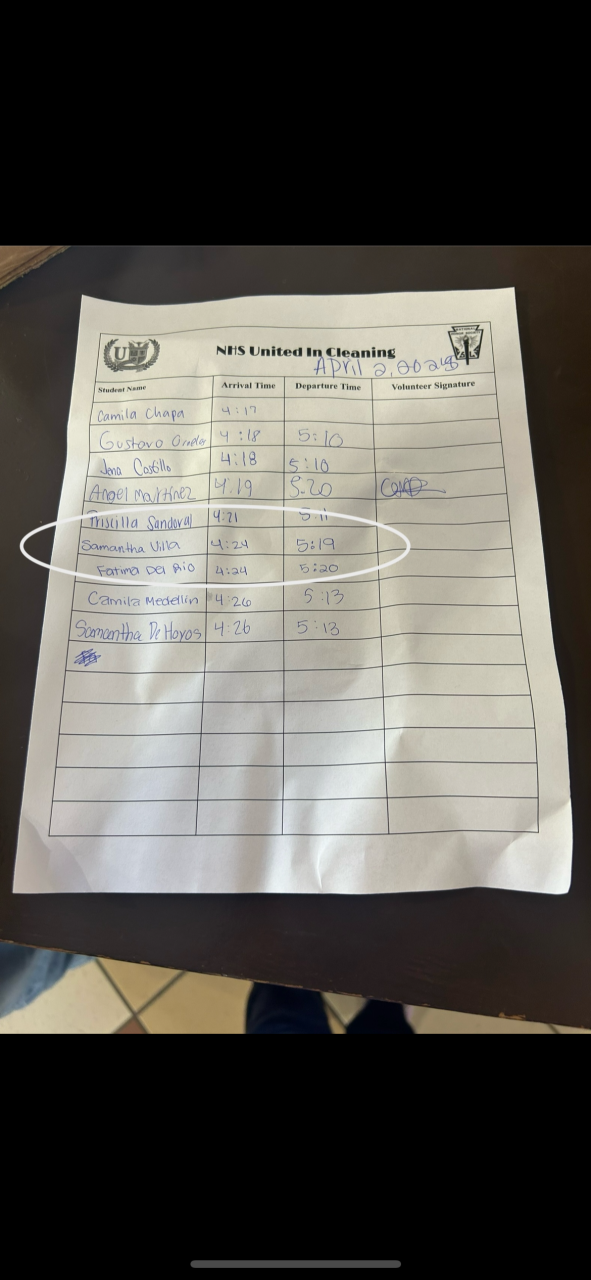 NHS United In Cleaning
April 2, 202
Student Name Arrival Time Departure Time Volunteer Signature
Camila Chapa 4:17
Gustavo 4:18 5:10
Jena Castillo 4:18 5:10
Angel Martinez 4:19 5:20
Priscilla Sandoval 4:21 5:11
Samantha Villa 4:24 5:19
Fatima Del Rio 4:24 5:20
Camila Medellin 4:26 5:13
Samantha De Hoyos 4:26 5:13